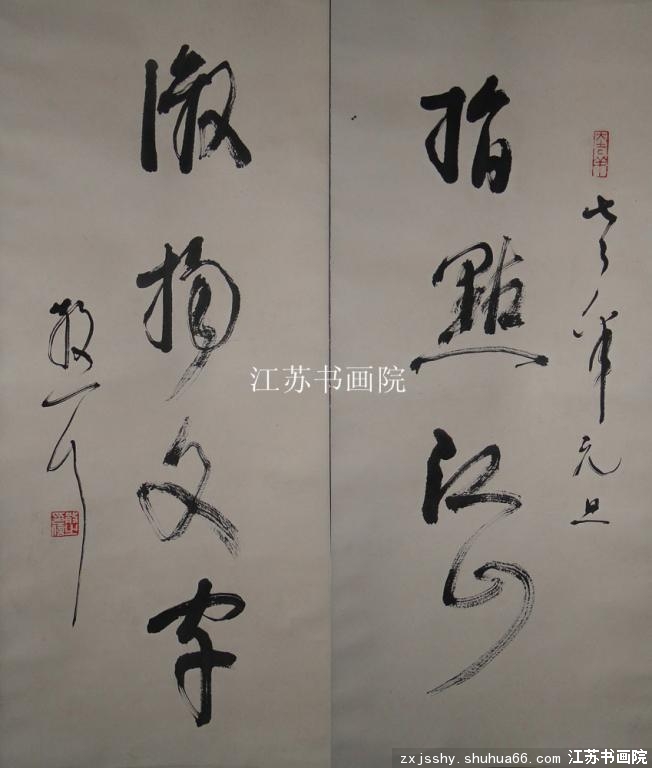 指點江山
年元旦
激揚文字
江苏书画院
zxjsshy.shuhua66.com 江苏书画院